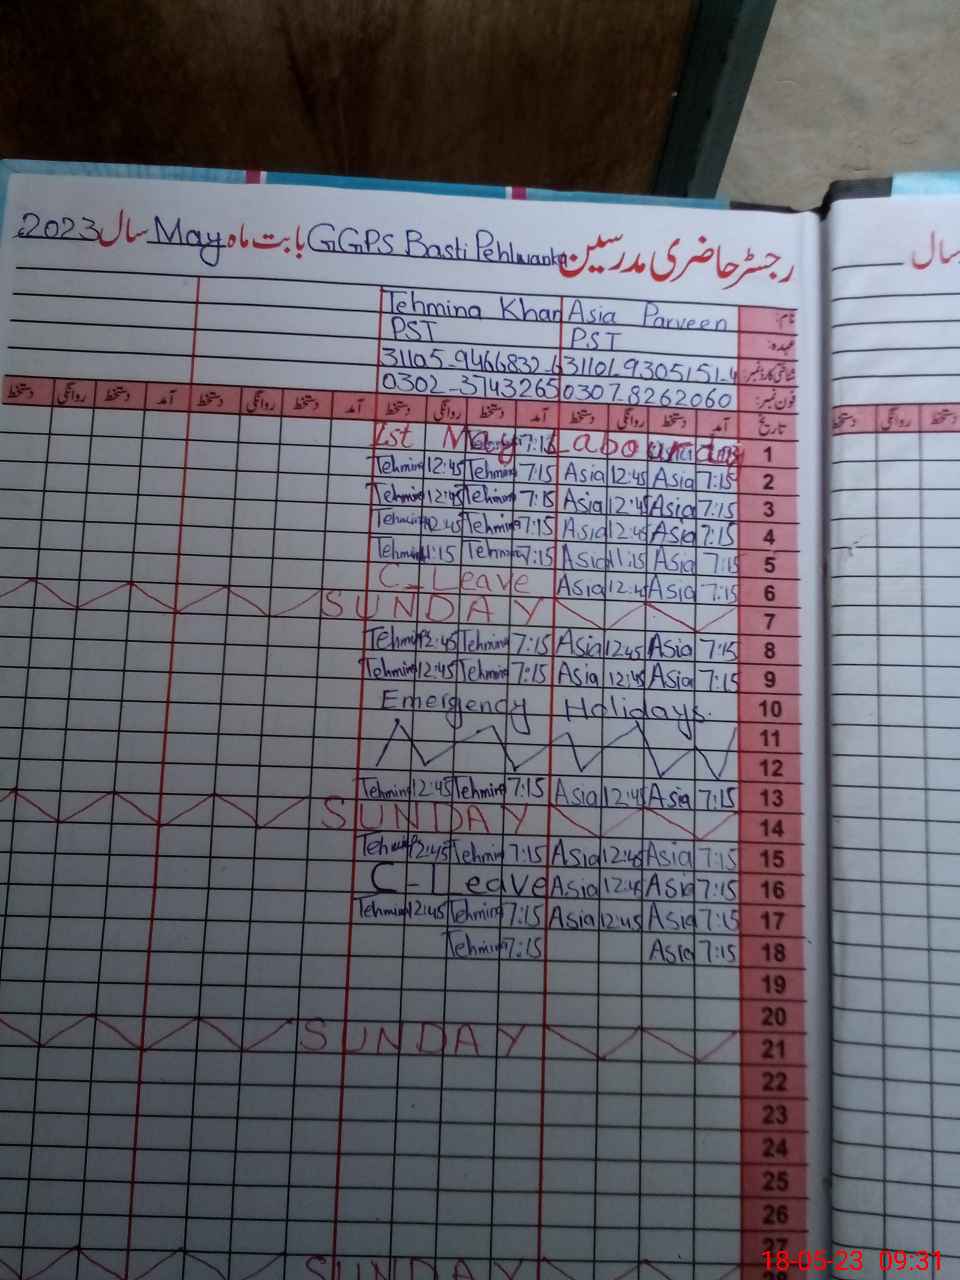 رجسٹر حاضری مدرسین GGPS Basti Pehlwanka بابت ماہ May سال 2023ء
سال
نام: Asia Parveen Tehmina Khan
عہدہ: PST PST
شناختی کارڈ نمبر: 31101-9305151-4 31105-9466832-6
فون نمبر: 0307-8262060 0302-3743265
تاریخ آمد دستخط روانگی دستخط آمد دستخط روانگی دستخط آمد دستخط روانگی دستخط آمد دستخط روانگی دستخط
دستخط روانگی دستخط
1 1st May Labour day 7:15
2 7:15 Asia 12:45 Asia 7:15 Tehmina 12:45 Tehmina
3 7:15 Asia 12:45 Asia 7:15 Tehmina 12:45 Tehmina
4 7:15 Asia 12:45 Asia 7:15 Tehmina 12:45 Tehmina
5 7:15 Asia 11:15 Asia 7:15 Tehmina 11:15 Tehmina
6 7:15 Asia 12:45 Asia C-Leave
7 SUNDAY
8 7:15 Asia 12:45 Asia 7:15 Tehmina 12:45 Tehmina
9 7:15 Asia 12:45 Asia 7:15 Tehmina 12:45 Tehmina
10 Emergency Holidays.
11
12
13 7:15 Asia 12:45 Asia 7:15 Tehmina 12:45 Tehmina
14 SUNDAY
15 7:15 Asia 12:45 Asia 7:15 Tehmina 12:45 Tehmina
16 7:15 Asia 12:45 Asia C-Leave
17 7:15 Asia 12:45 Asia 7:15 Tehmina 12:45 Tehmina
18 7:15 Asia 7:15 Tehmina
19
20
21 SUNDAY
22
23
24
25
26
27
28 SUNDAY
18-05-23 09:31